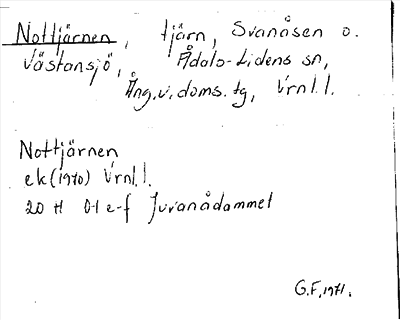 Nottjärnen, tjärn, Svanåsen o.
Västansjö, Ådals-Lidens sn,
Ång.v.doms.tg, Vrnl.l.
Nottjärnen
ek(1970) Vrnl.l.
20 H 0-1 e-f
G.F, 1971.